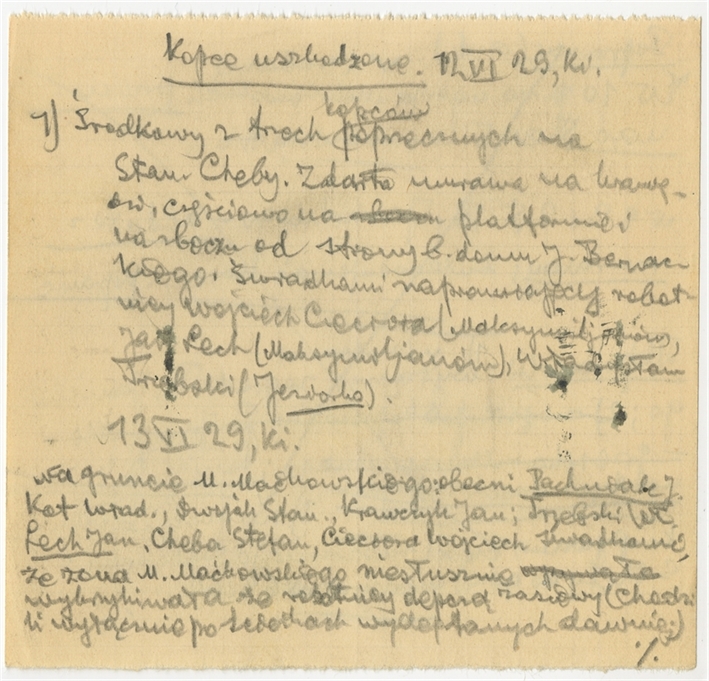 Kopce uszkodzone. 12 VI 29, Ki.
kopców
1) Środkowy z trzech poprzecznych na
Stan. Cheby. Zdarta murawa na krawę-
dzi, częściowo na platformie i
na zboczu od strony b. domu J. Bernac-
kiego. Świadkami naprawiający robot-
nicy Wojciech Cieciora (Maksymiljanów),
Jan Lech (Maksymiljanów), Władysław
Trzebski (Jeziorko).
13 VI 29, Ki.
Na gruncie M. Maćkowskiego: obecni Pachudak J.
Kot Wład., Dwojak Stan., Krawczyk Jan; Trzebski Wł.
Lech Jan, Cheba Stefan, Cieciora Wojciech świadkami,
że żona M. Maćkowskiego niesłusznie
wykrykiwała że robotnicy depcą zasiewy (chodzi
li wyłącznie po ścieżkach wydeptanych dawniej)
./.